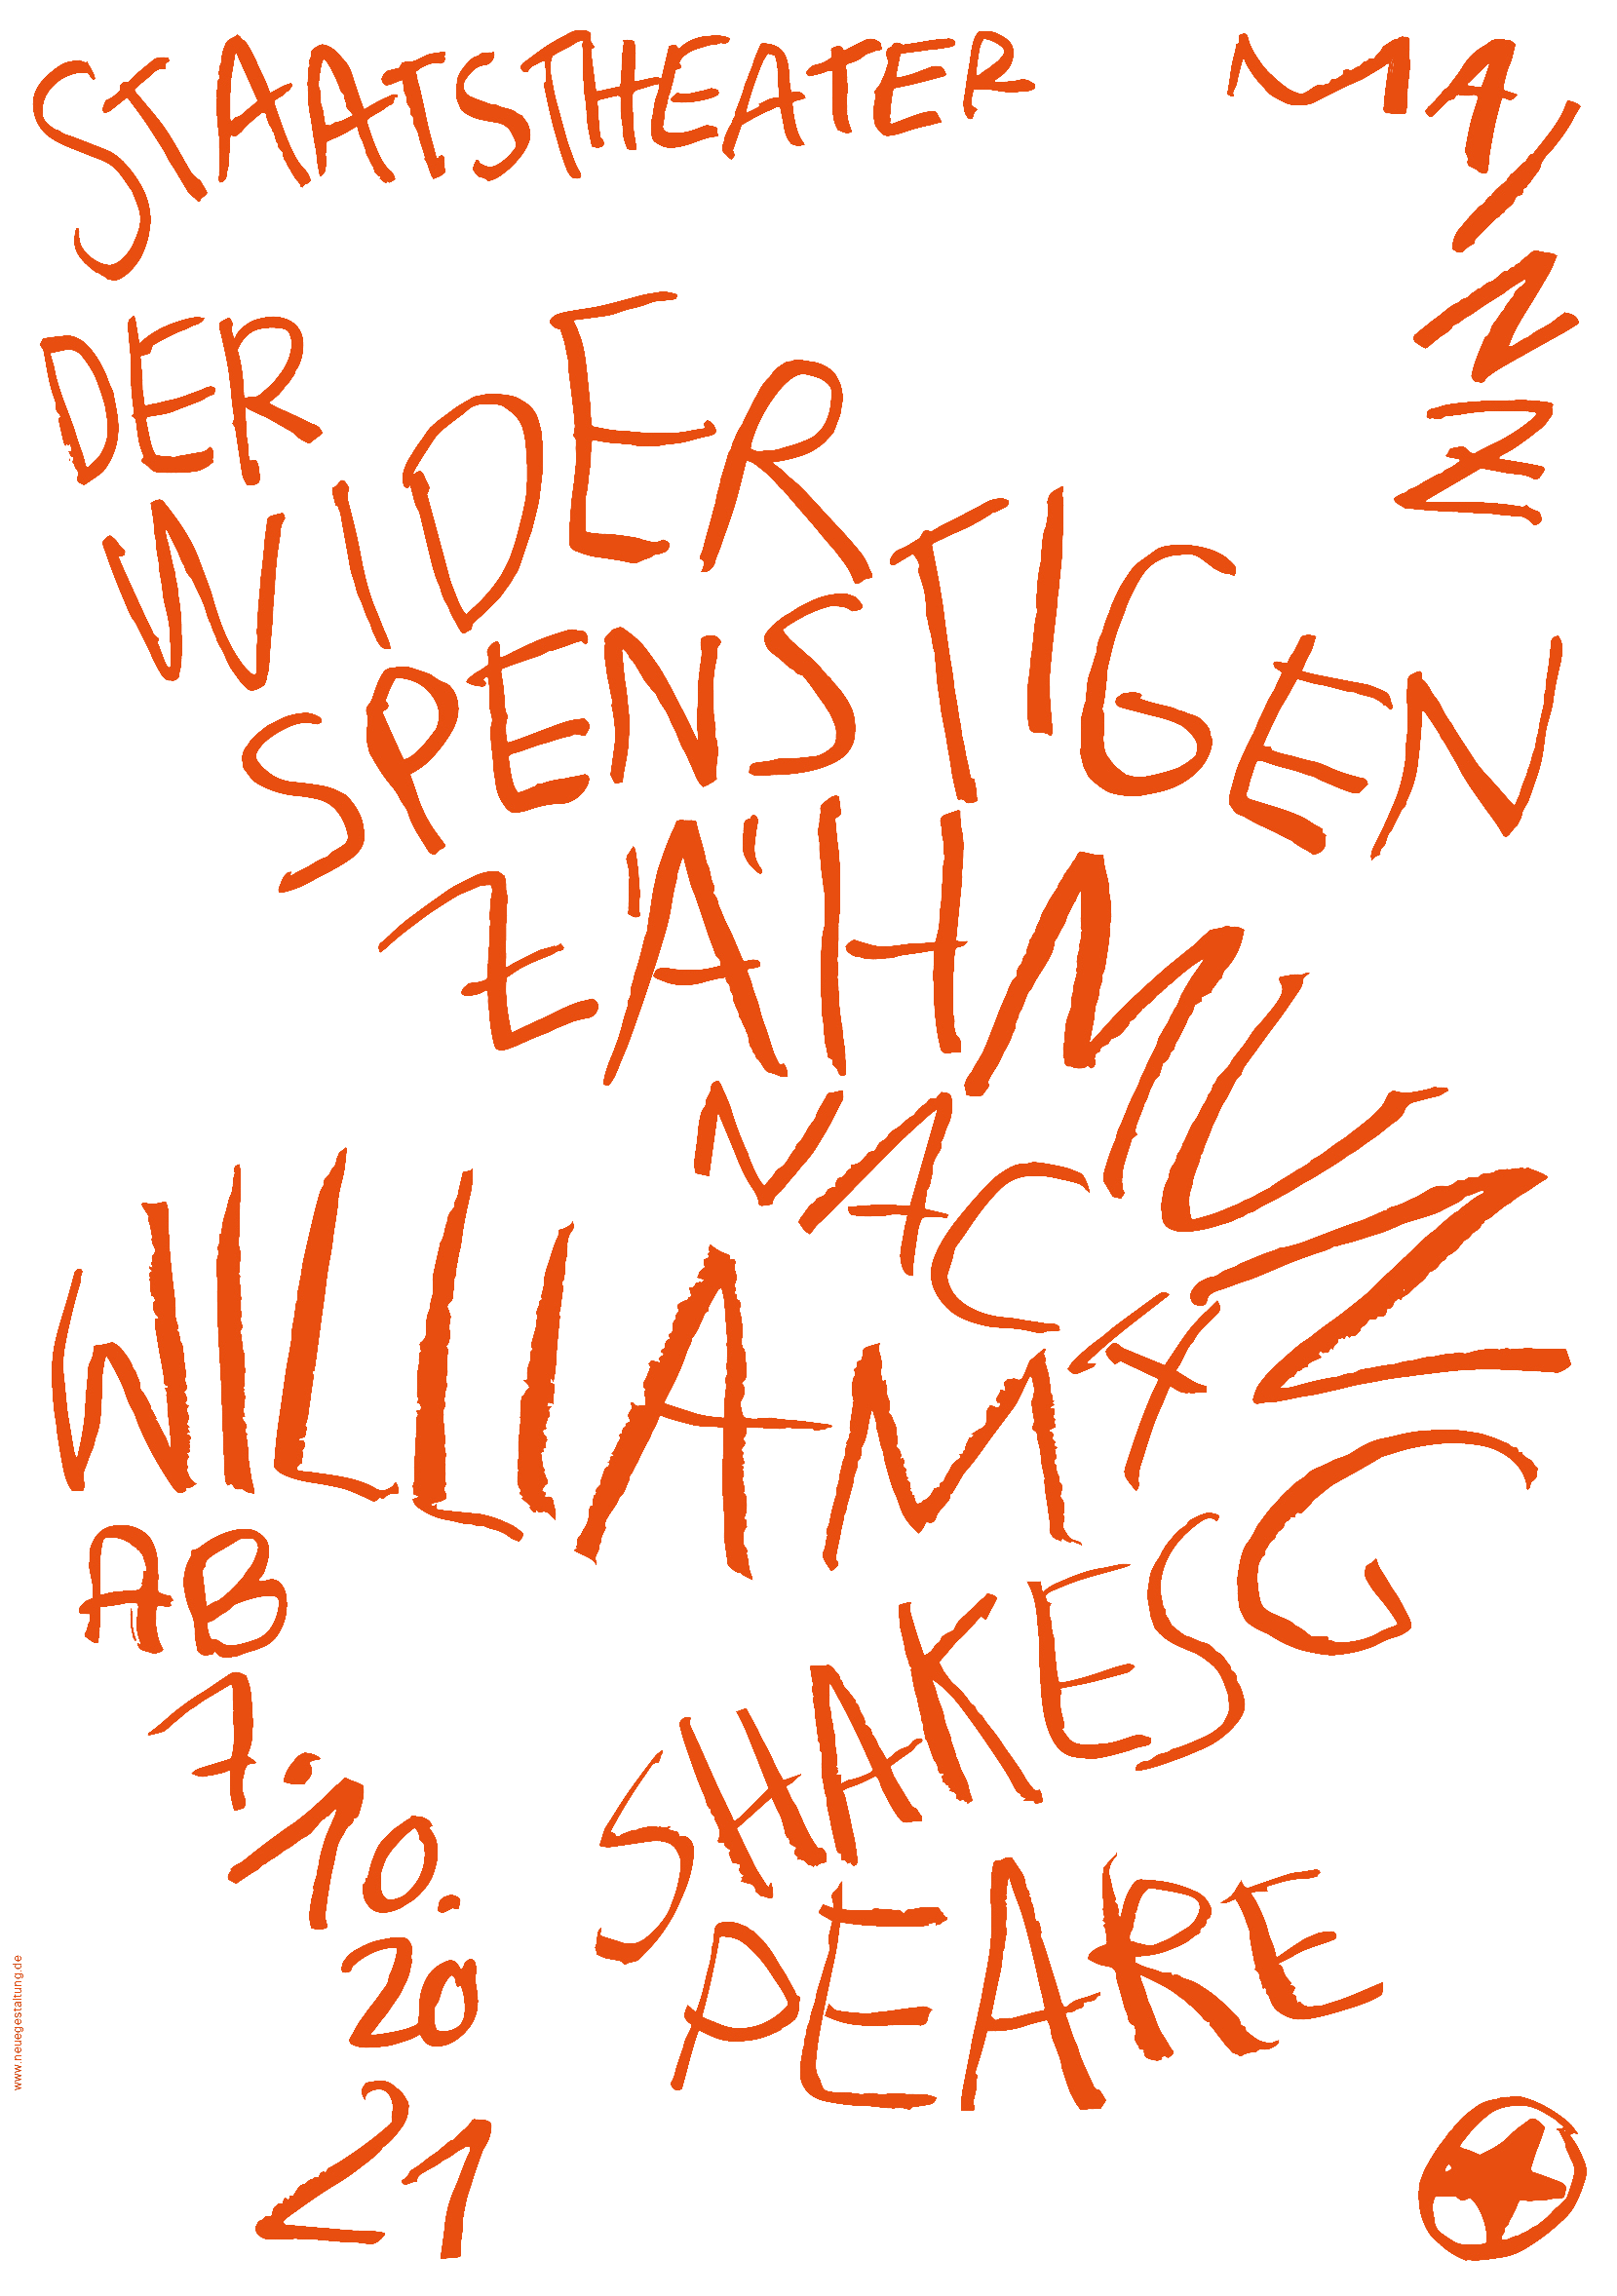 STAATSTHEATER MAINZ
DER
WIDER
SPENSTIGEN
ZÄHMUNG
NACH
WILLIAM
SHAKES
PEARE
AB
7.
10.
20
21
www.neuegestaltung.de